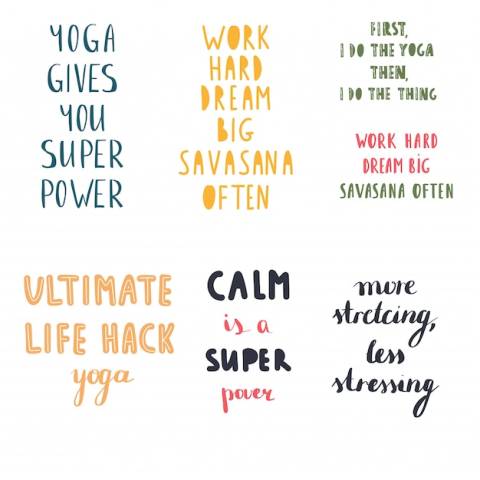 YOGA
GIVES
YOU
SUPER
POWER
WORK
HARD
DREAM
BIG
SAVASANA
OFTEN
FIRST,
I DO THE YOGA
THEN,
I DO THE THING
WORK HARD
DREAM BIG
SAVASANA OFTEN
ULTIMATE
LIFE HACK
yoga
CALM
is a
SUPER
pover
more
stretcing,
less
stressing